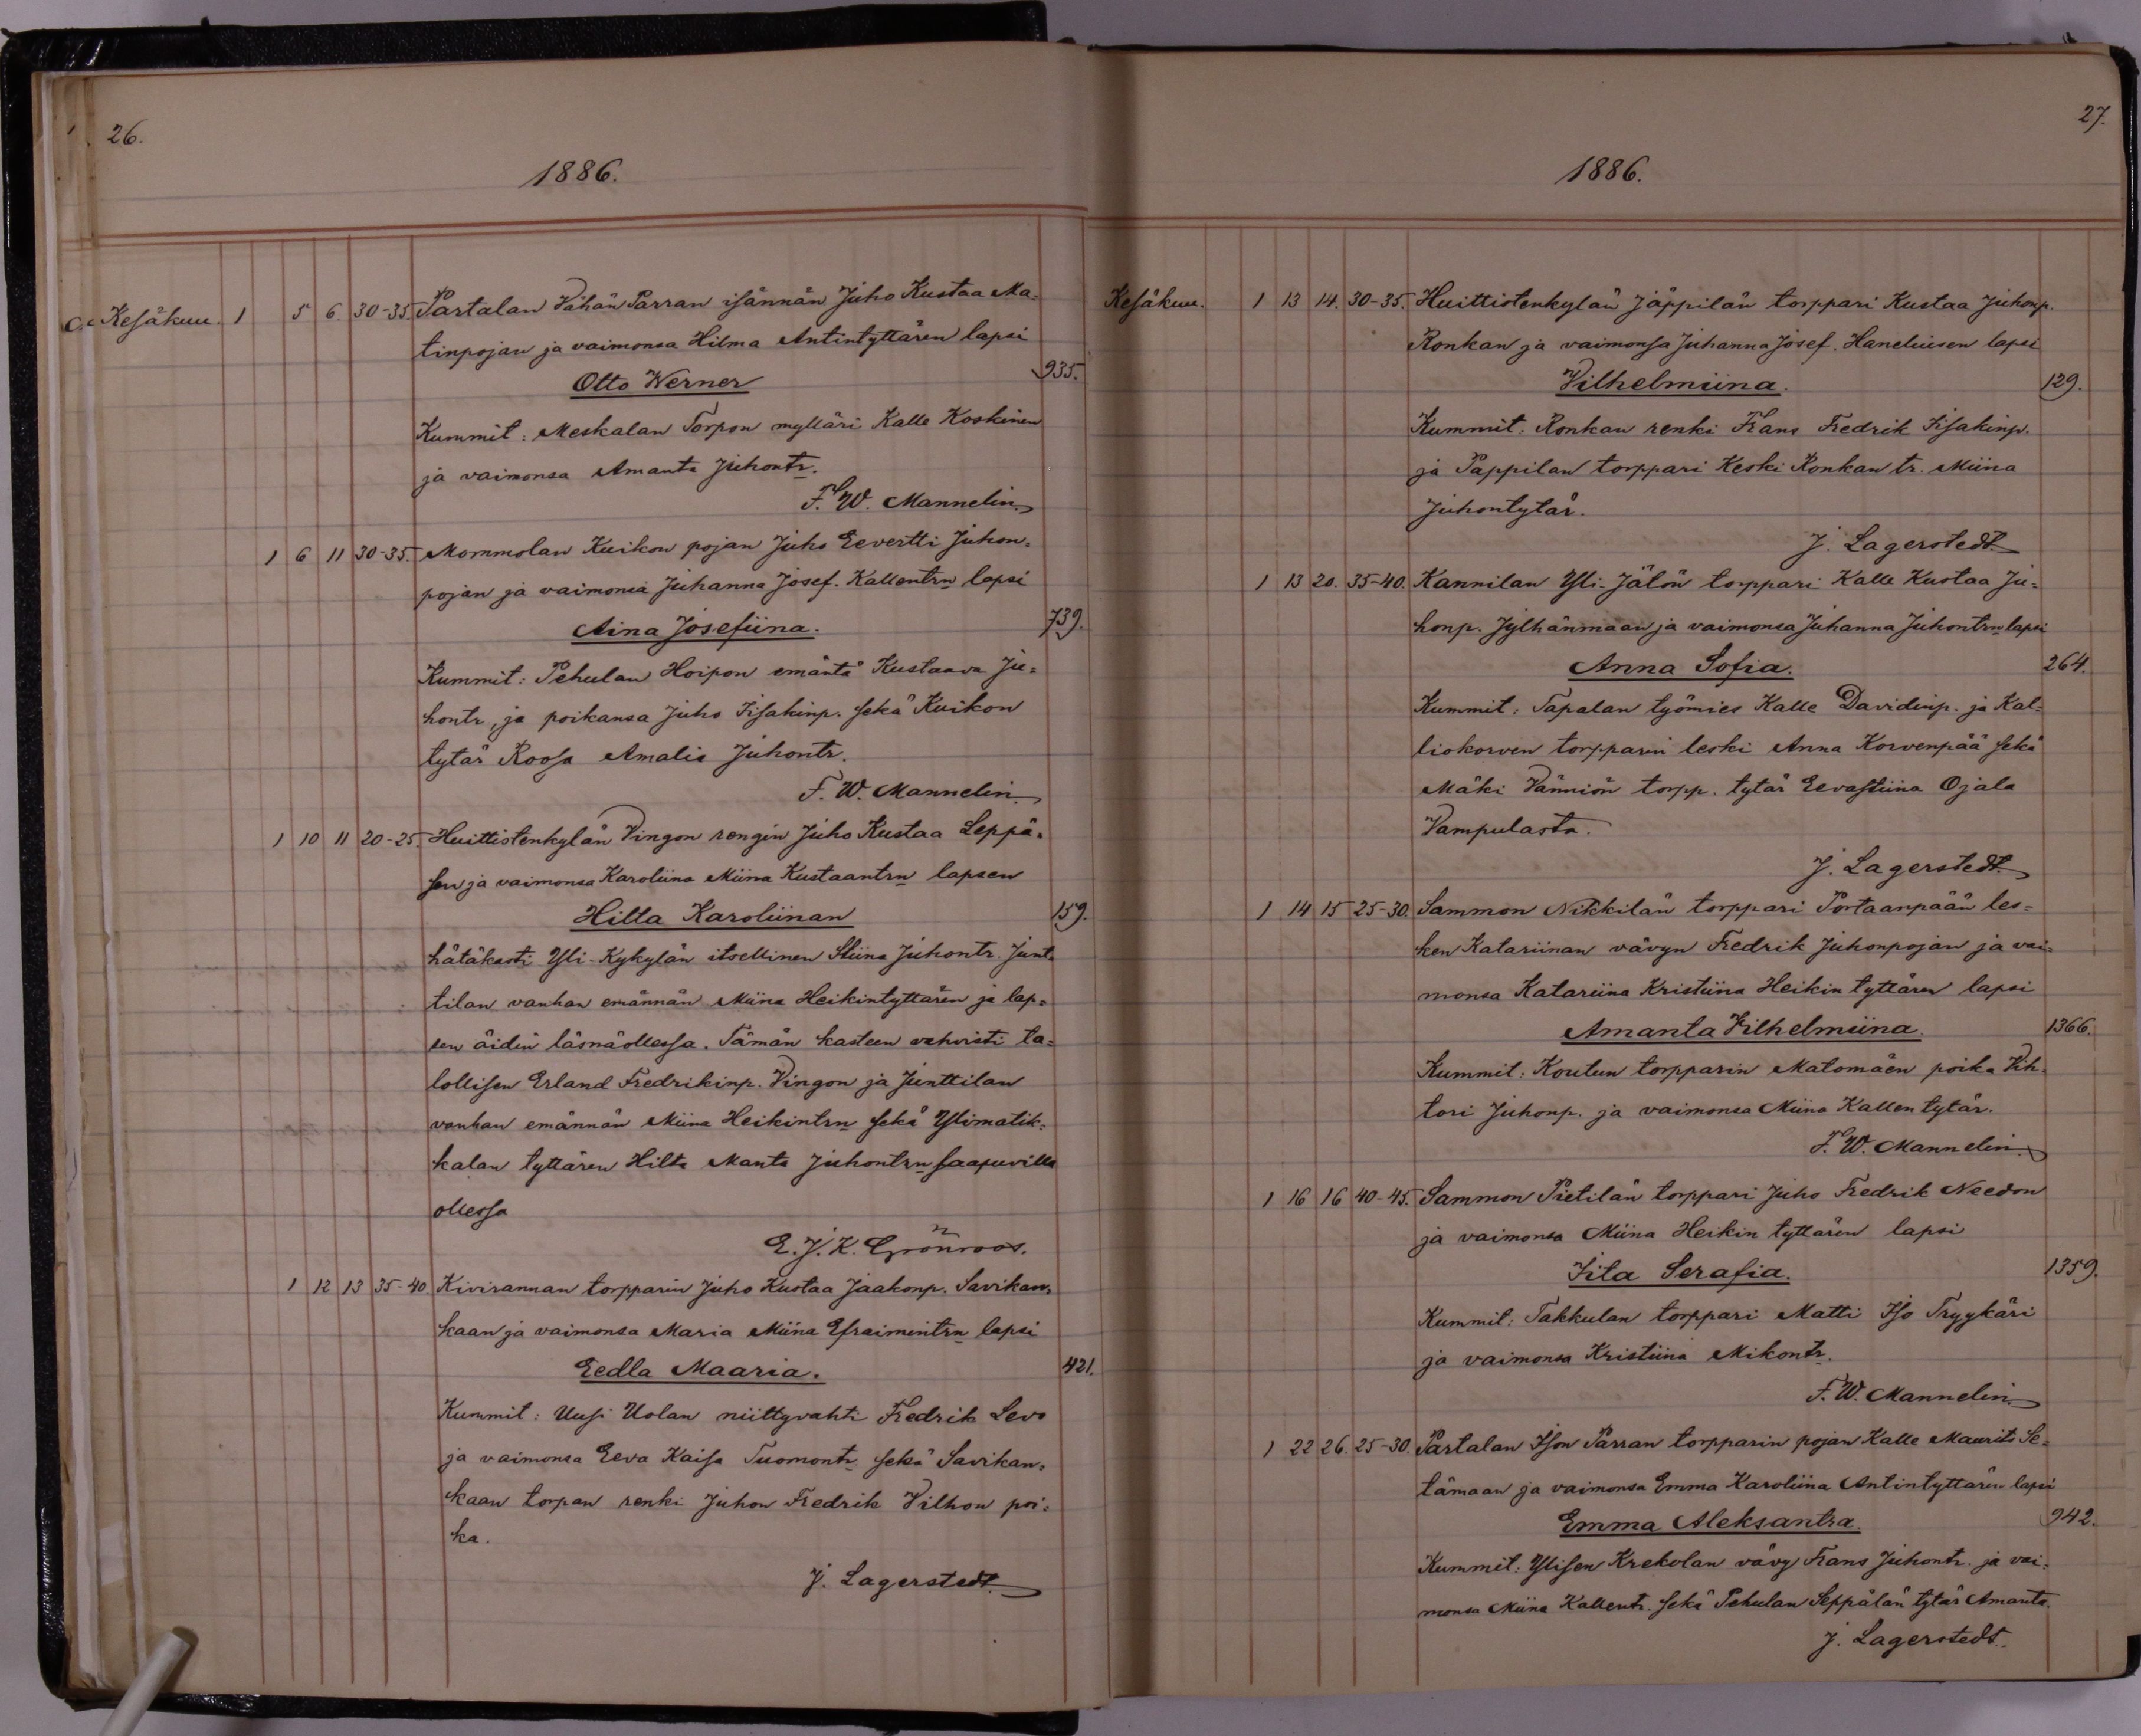 26.
1886.
Kesäkuu. 1 5 6. 30-35. Partalan Vähän Parran isännän Juho Kustaa Ma-
tinpojan ja vaimonsa Hilma Antintyttären lapsi
Otto Werner 935.
Kummit: Meskalan Torpon mylläri Kalle Koskinen
ja vaimonsa Amanta Juhontr.
F. W. Mannelin.
1 6 11 30-35. Mommolan Kuikon pojan Juho Eevertti Juhon-
pojan ja vaimonsa Juhanna Josef. Kallentrn lapsi
Aina Josefiina. 739.
Kummit: Pehulan Hoipon emäntä Kustaava Ju-
hontr, ja poikansa Juho Iisakinp. sekä Kuikon
tytär Roosa Amalia Juhontr.
F. W. Mannelin.
1 10 11 20-25. Huittistenkylän Vingon rengin Juho Kustaa Leppä-
sen ja vaimonsa Karoliina Miina Kustaantrn lapsen
Hilta Karoliinan 159.
hätäkasti Yli-Kykylän itsellinen Stiina Juhontr. Junt-
tilan vanhan emännän Miina Heikintyttären ja lap-
sen äidin läsnäollessa. Tämän kasteen vahvisti ta-
lollisen Erland Fredrikinp. Vingon ja Junttilan
vanhan emännän Miina Heikintrn sekä Ylimatik-
kalan tyttären Hilta Manta Juhontrn saapuvilla
ollessa
E. J. K. Grönroos.
1 12 13 35-40 Kivirannan torpparin Juho Kustaa Jaakonp. Savikan-
kaan ja vaimonsa Maria Miina Efraimintrn lapsi
Eedla Maaria. 421.
Kummit: Uusi Uolan niittyvahti Fredrik Levo
ja vaimonsa Eeva Kaisa Tuomontr. sekä Savikan-
kaan torpan renki Juhon Fredrik Vilhon poi-
ka.
J. Lagerstedt.
27.
1886.
Kesäkuu. 1 13 14. 30-35. Huittistenkylän Jäppilän torppari Kustaa Juhonp.
Ronkan ja vaimonsa Juhanna Josef. Haneliusen lapsi
Vilhelmiina. 129.
Kummit: Ronkan renki Frans Fredrik Iisakinp.
ja Pappilan torppari Keski Ronkan tr. Miina
Juhontytär.
J. Lagerstedt.
1 13 20. 35-40. Kannilan Yli-Jätön torppari Kalle Kustaa Ju-
honp. Jylhänmaan ja vaimonsa Juhanna Juhontrn lapsi
Anna Sofia. 264.
Kummit: Tapalan työmies Kalle Davidinp. ja Kal-
liokorven torpparin leski Anna Korvenpää sekä
Mäki Vännion torpp. tytär Eevastiina Ojala
Vampulasta.
J. Lagerstedt.
1 14 15 25-30. Sammon Nikkilän torppari Portaanpään les-
ken Katariinan vävyn Fredrik Juhonpojan ja vai-
monsa Katariina Kristiina Heikin tyttären lapsi
Amanta Vilhelmiina. 1366.
Kummit: Koutun torpparin Matomäen poika Vih-
tori Juhonp. ja vaimonsa Miina Kallen tytär.
F. W. Mannelin.
1 16 16 40-45. Sammon Pietilän torppari Juho Fredrik Needon
ja vaimonsa Miina Heikin tyttären lapsi
Iita Serafia. 1359.
Kummit: Takkulan torppari Matti Iso Tryykäri
ja vaimonsa Kristiina Mikontr.
F. W. Mannelin.
1 22 26. 25-30. Partalan Ison Parran torpparin pojan Kalle Maurits Se-
tämaan ja vaimonsa Emma Karoliina Antintyttären lapsi
Emma Aleksantra. 942.
Kummit: Ylisen Krekolan vävy Frans Juhontr. ja vai-
monsa Miina Kallentr. sekä Pehulan Seppälän tytär Amanta.
J. Lagerstedt.